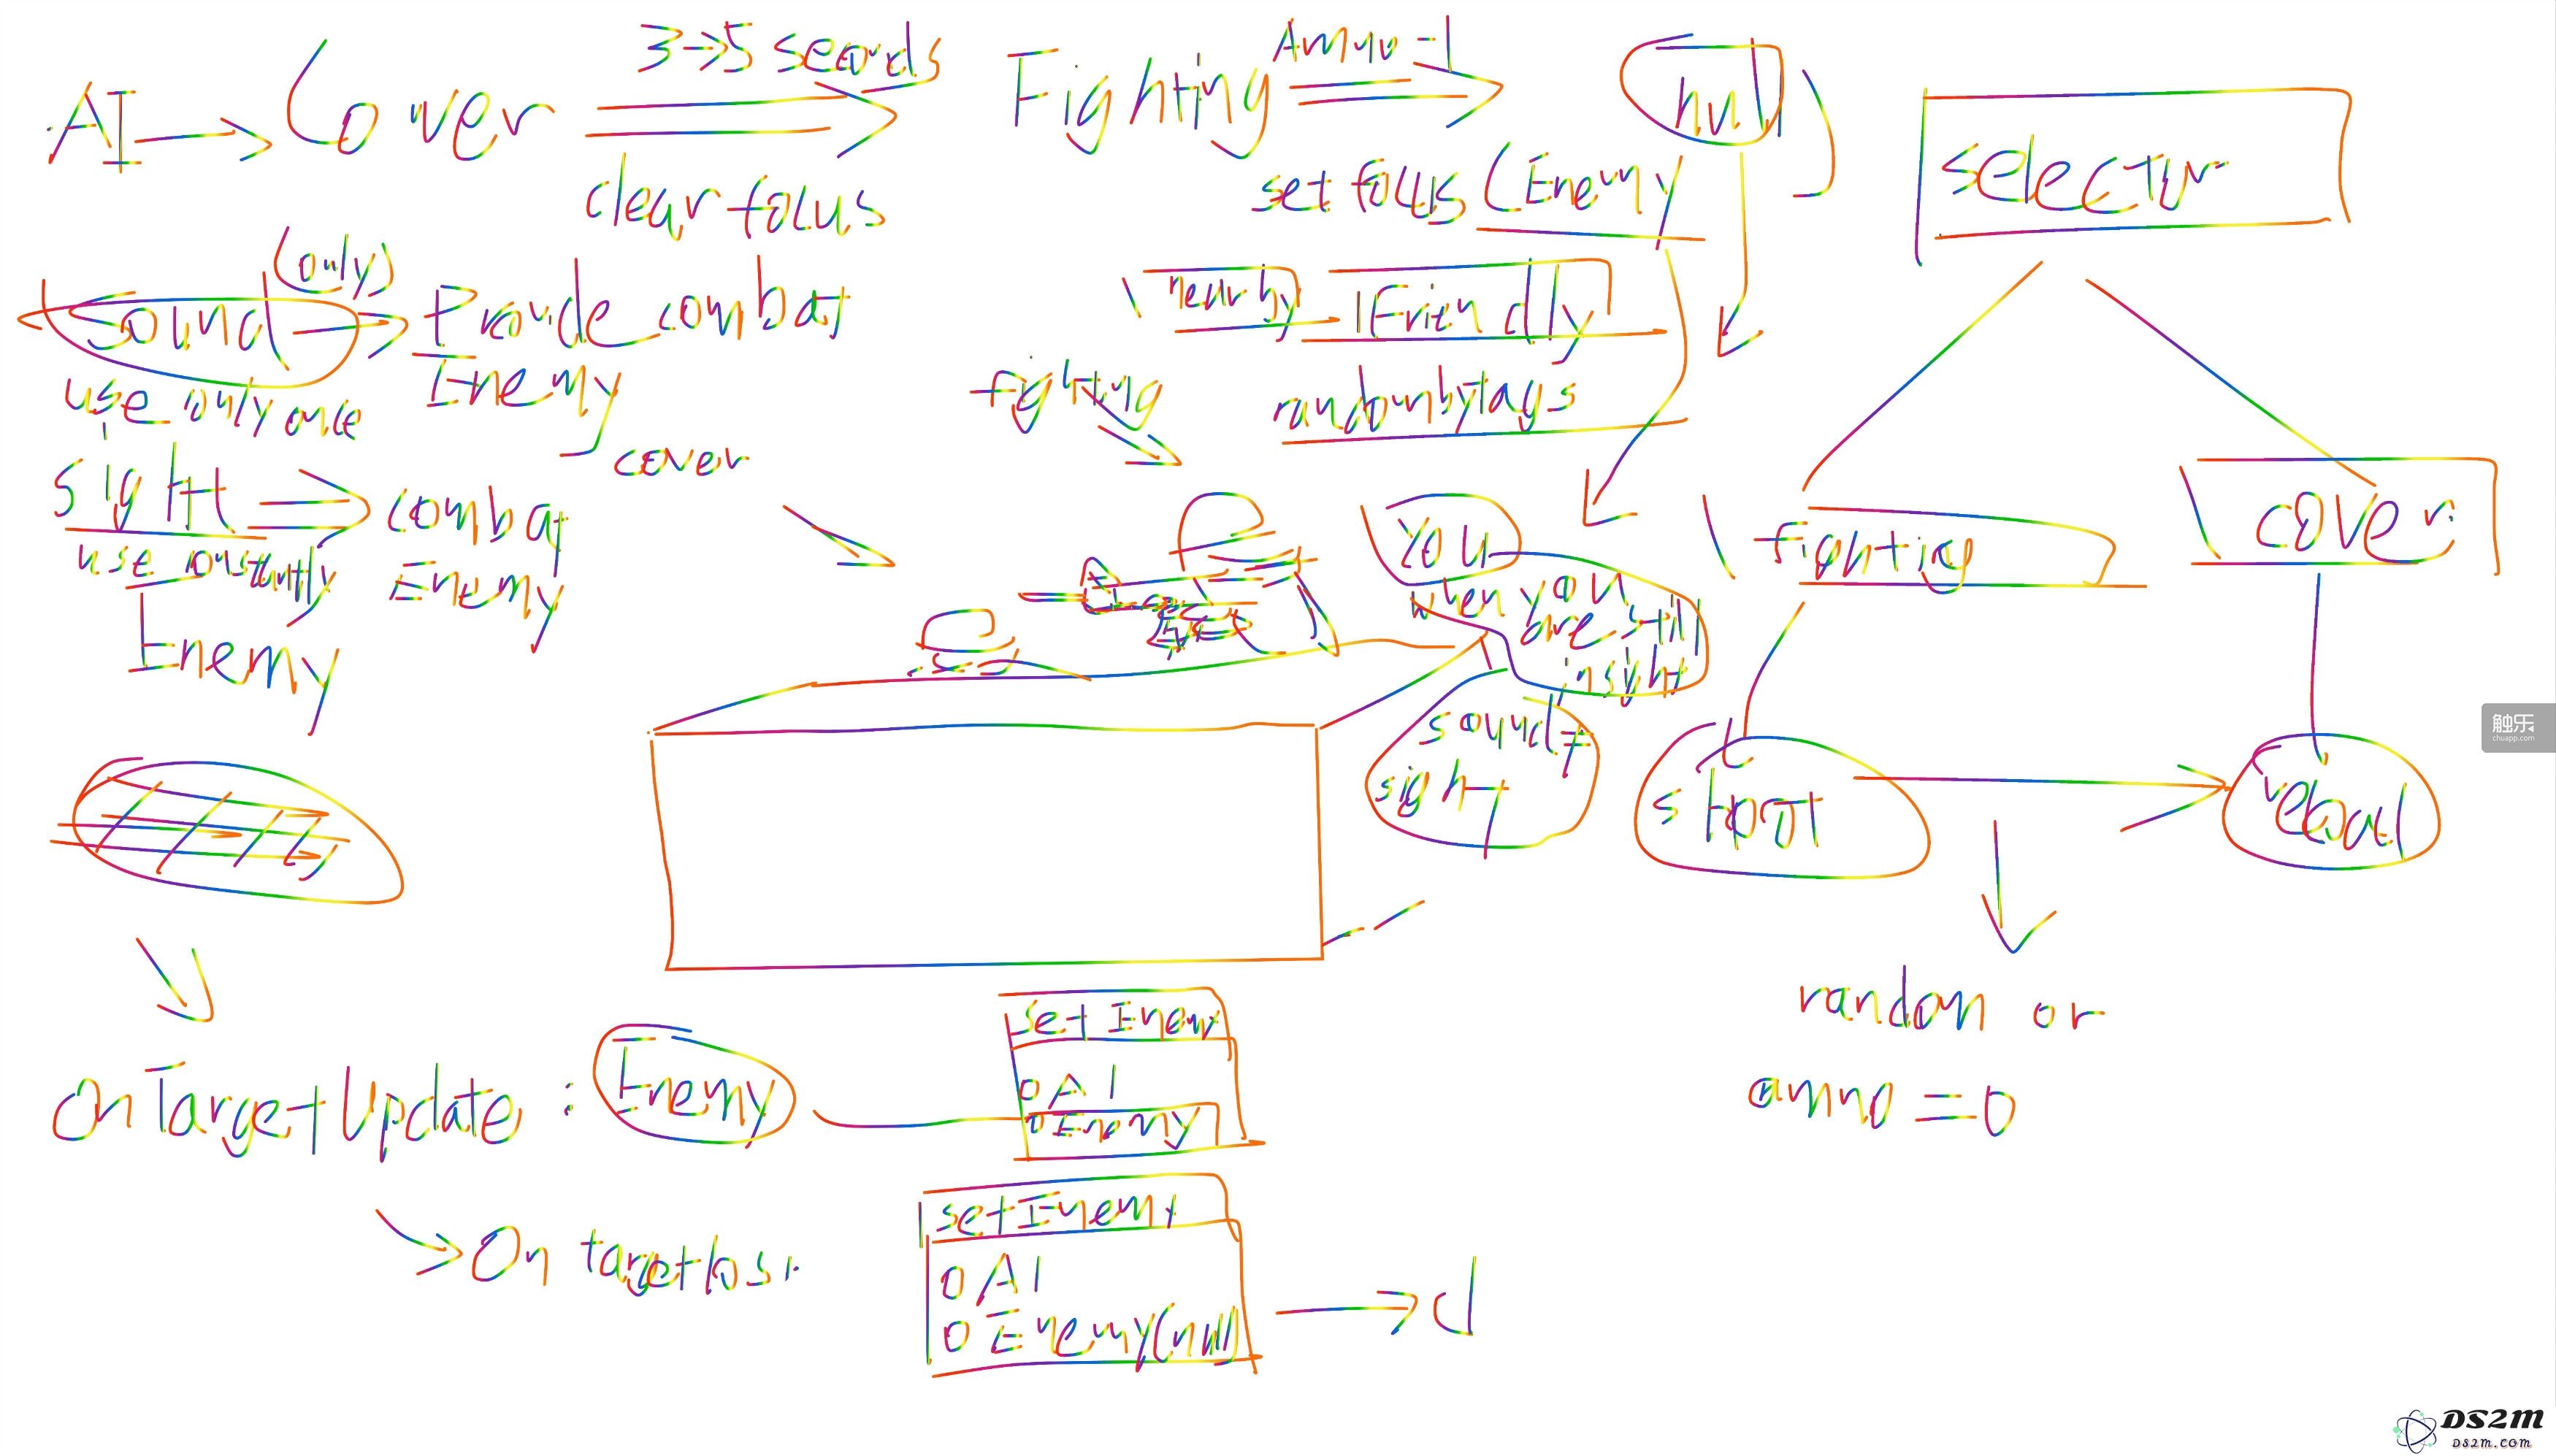 AI → Cover
3→5 seconds
clear focus
Fighting
Ammo -1
null
set focus (Enemy
selector
(only)
Sound → Provide combat
Enemy
use only once
nearby Friendly
randombytags
fighting
cover
sight
combat
Enemy
use constantly
Enemy
You
when you
are still
insight
sound ≠
sight
fighting
cover
shoot
reload
random or
ammo = 0
OnTargetUpdate : Enemy
set Enemy
o AI
o Enemy
On target
set Enemy
o AI
o Enemy(null) → d
触乐
chuapp.com
DS2M
DS2M.COM